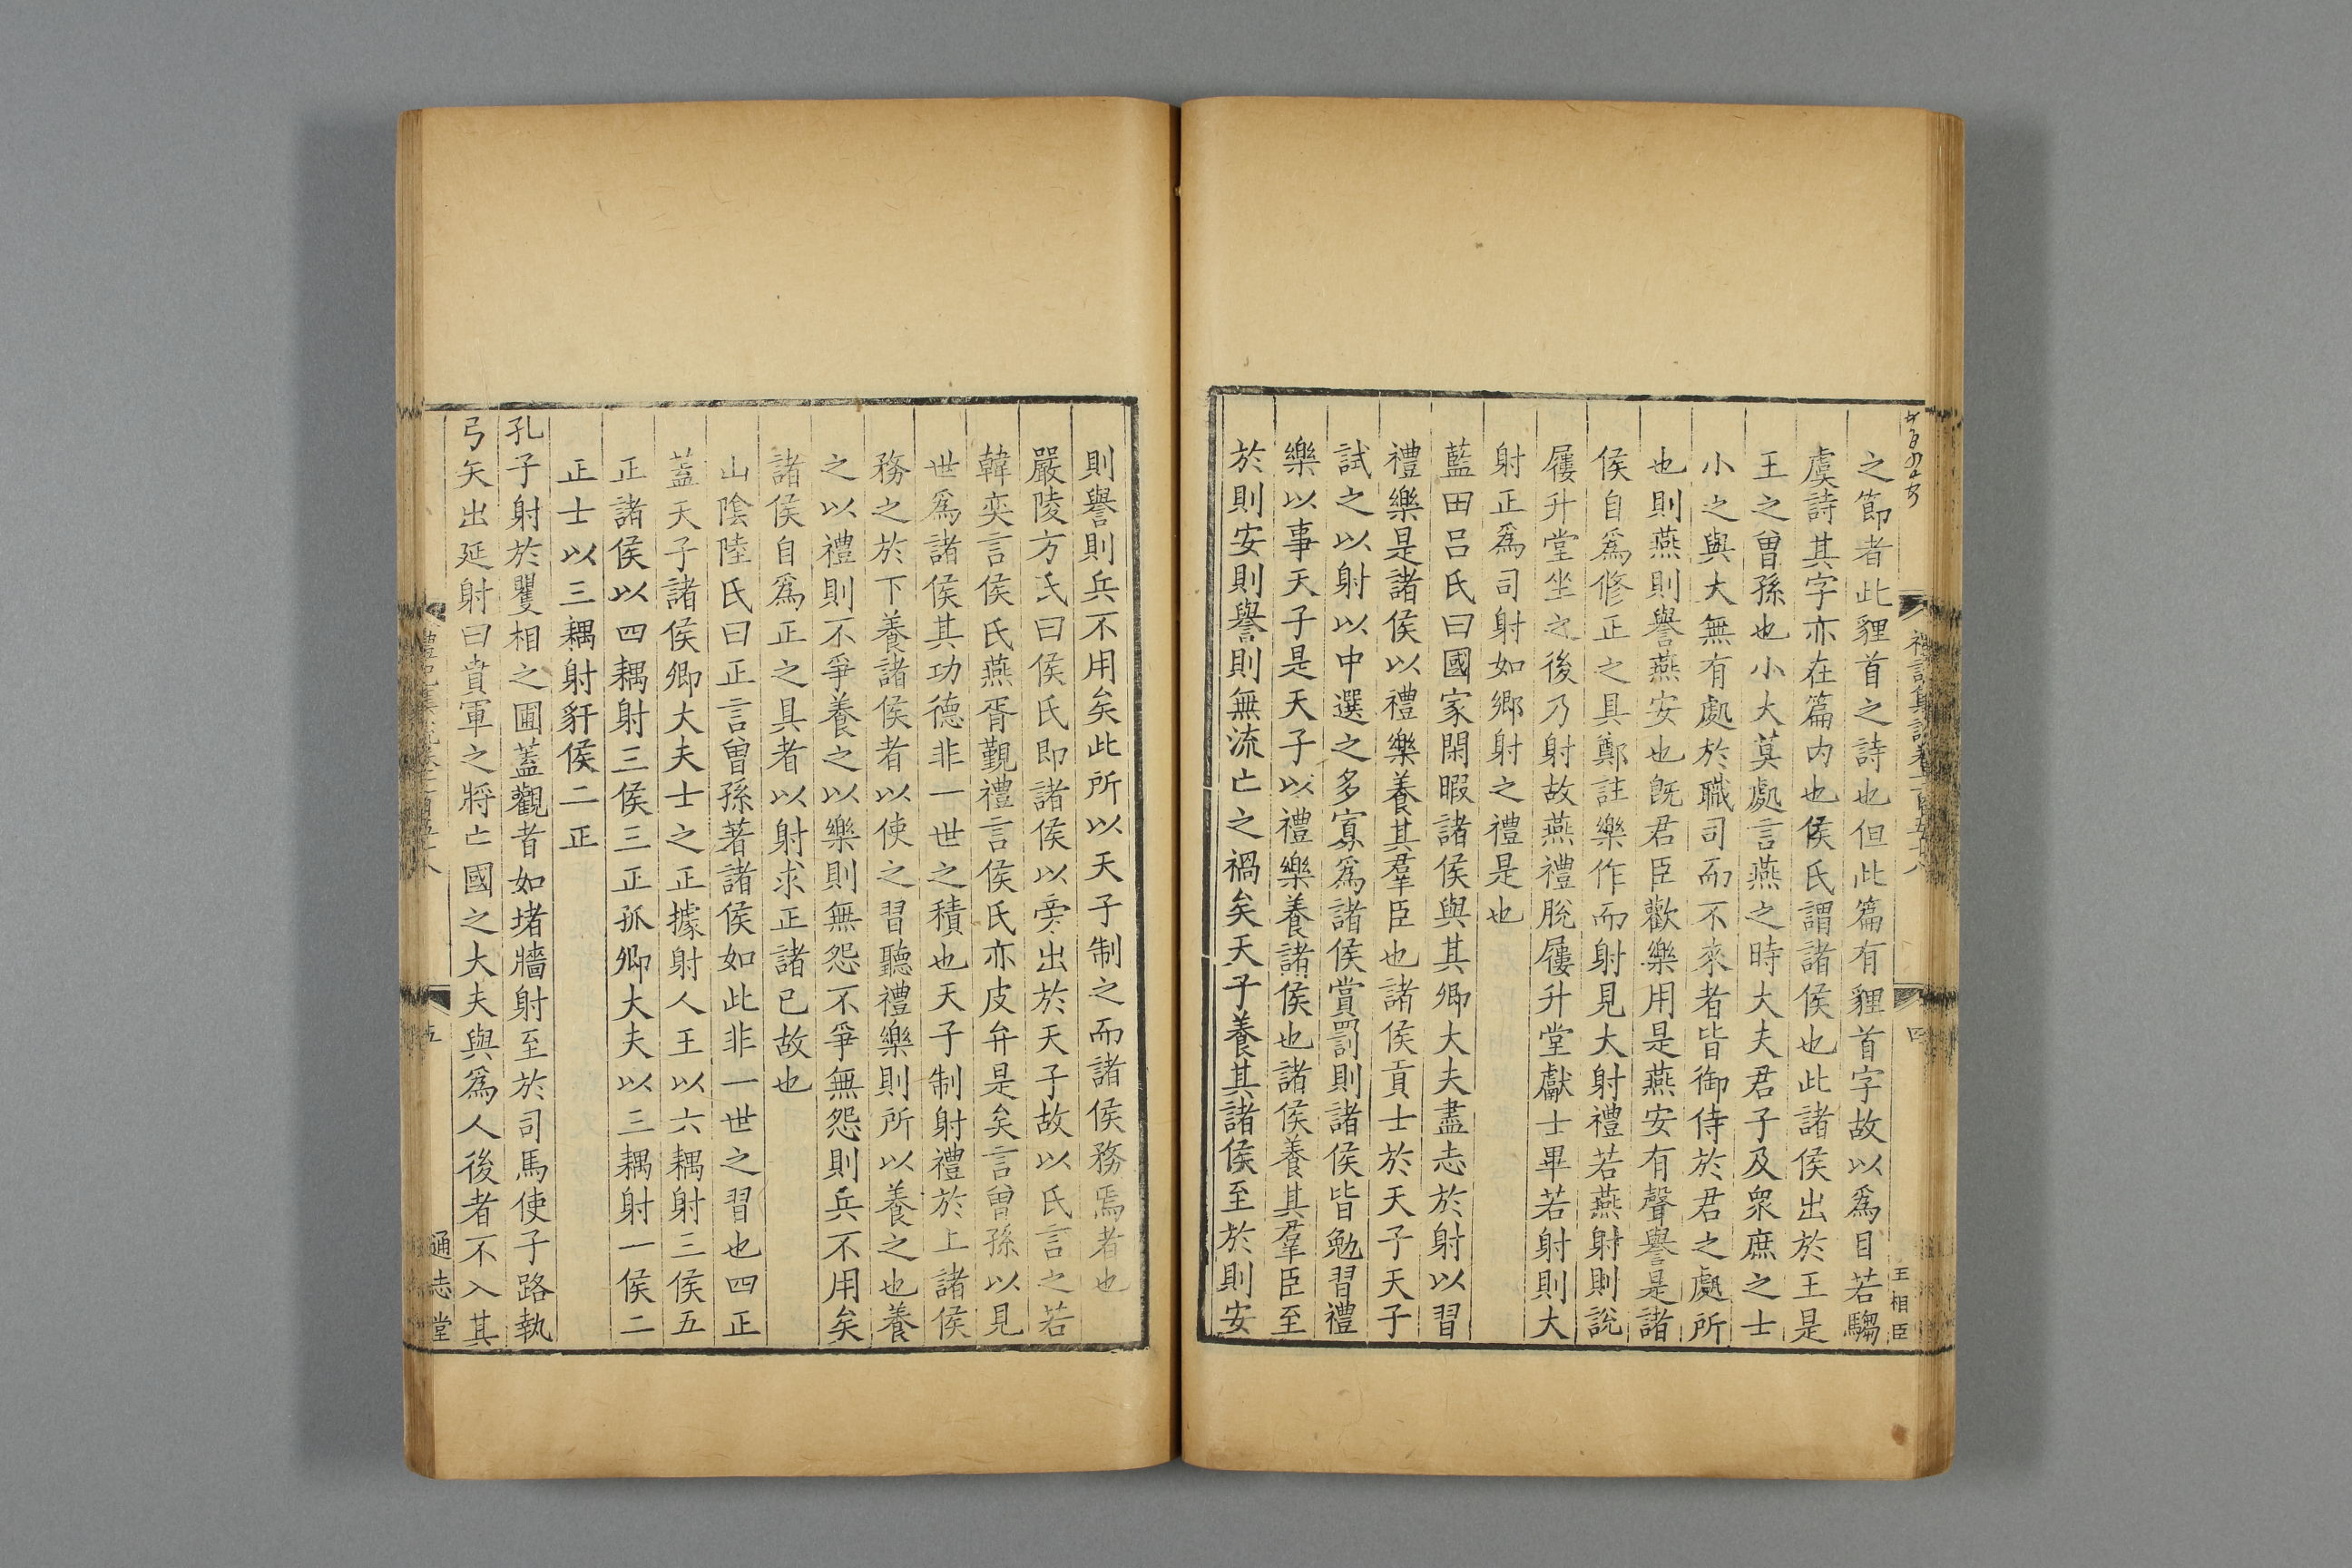 之節者此貍首之詩也但此篇有貍首字故以爲目若騶
虞詩其字亦在篇内也侯氏謂諸侯也此諸侯出於王是
王之曾孫也小大莫處言燕之時大夫君子及衆庶之士
小之與大無有處於職司而不來者皆御侍於君之處所
也則燕則譽燕安也旣君臣歡樂用是燕安有聲譽是諸
侯自爲修正之具鄭註樂作而射見大射禮若燕射則說
屨升堂坐之後乃射故燕禮脫屨升堂獻士畢若射則大
射正爲司射如鄉射之禮是也
藍田呂氏曰國家閑暇諸侯與其卿大夫盡志於射以習
禮樂是諸侯以禮樂養其羣臣也諸侯貢士於天子天子
試之以射以中選之多寡爲諸侯賞罰則諸侯皆勉習禮
樂以事天子是天子以禮樂養諸侯也諸侯養其羣臣至
於則安則譽則無流亡之禍矣天子養其諸侯至於則安
禮記集說卷一百五十八
四
王相臣
則譽則兵不用矣此所以天子制之而諸侯務焉者也
嚴陵方氏曰侯氏即諸侯以旁出於天子故以氏言之若
韓奕言侯氏燕胥覲禮言侯氏亦皮弁是矣言曾孫以見
世爲諸侯其功德非一世之積也天子制射禮於上諸侯
務之於下養諸侯者以使之習聽禮樂則所以養之也養
之以禮則不爭養之以樂則無怨不爭無怨則兵不用矣
諸侯自爲正之具者以射求正諸已故也
山陰陸氏曰正言曾孫著諸侯如此非一世之習也四正
蓋天子諸侯卿大夫士之正據射人王以六耦射三侯五
正諸侯以四耦射三侯三正孤卿大夫以三耦射一侯二
正士以三耦射豻侯二正
孔子射於矍相之圃蓋觀者如堵牆射至於司馬使子路執
弓矢出延射曰賁軍之將亡國之大夫與爲人後者不入其
禮記集說卷一百五十八
五
通志堂